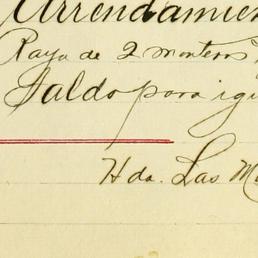 Arrendamien
Raya de 2 monteros
Saldo para igu
Hda. Las M